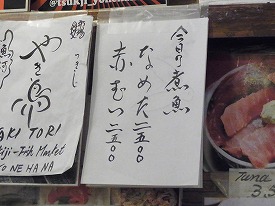 @tsukiji_yo
つきじ
やき鳥
YAKI TORI
Tsukiji-Fish Market
YO NE HANA
今日の煮魚
なめた 二五〇〇
赤むつ 二五〇〇
Tuna
3,5